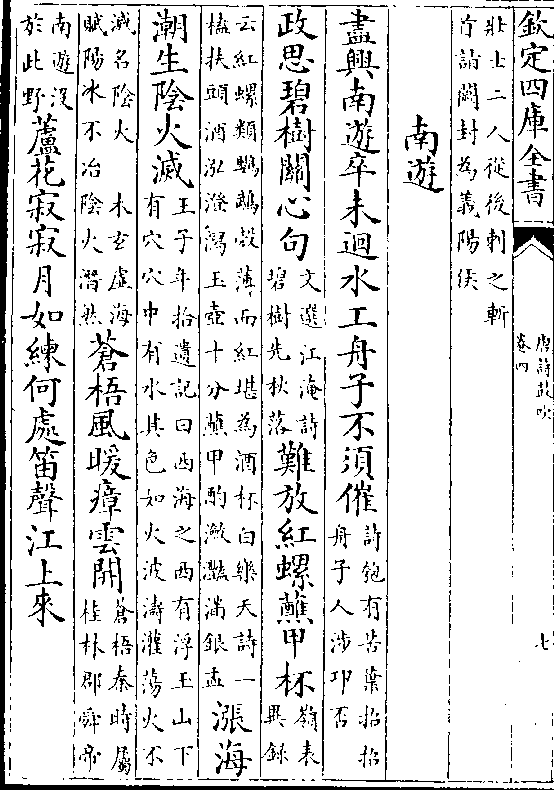 欽定四庫全書
唐詩鼓吹
卷四
七
壯士二人從後刺之斬
首詣闕封為義陽侯
南遊
盡興南遊卒未迴水工舟子不須催詩匏有苦葉招招
舟子人涉卬否
政思碧樹關心句文選江淹詩
碧樹先秋落難放紅螺蘸甲杯嶺表
異錄
云紅螺類鸚鵡殼薄而紅堪為酒杯白樂天詩一
榼扶頭酒泓澄瀉玉壺十分蘸甲酌瀲灩滿銀盂漲海
潮生陰火滅王子年拾遺記曰西海之西有浮玉山下
有穴穴中有水其色如火波濤灌蕩火不
滅名陰火 木玄虛海
賦陽冰不冶陰火潛然蒼梧風暖瘴雲開蒼梧秦時屬
桂林郡舜帝
南遊沒
於此野蘆花寂寂月如練何處笛聲江上來